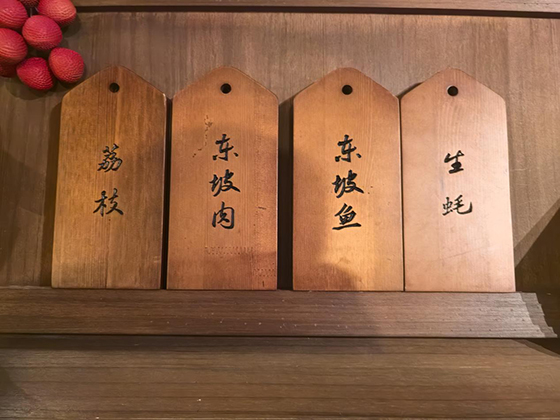 荔枝
东坡肉
东坡鱼
生蚝